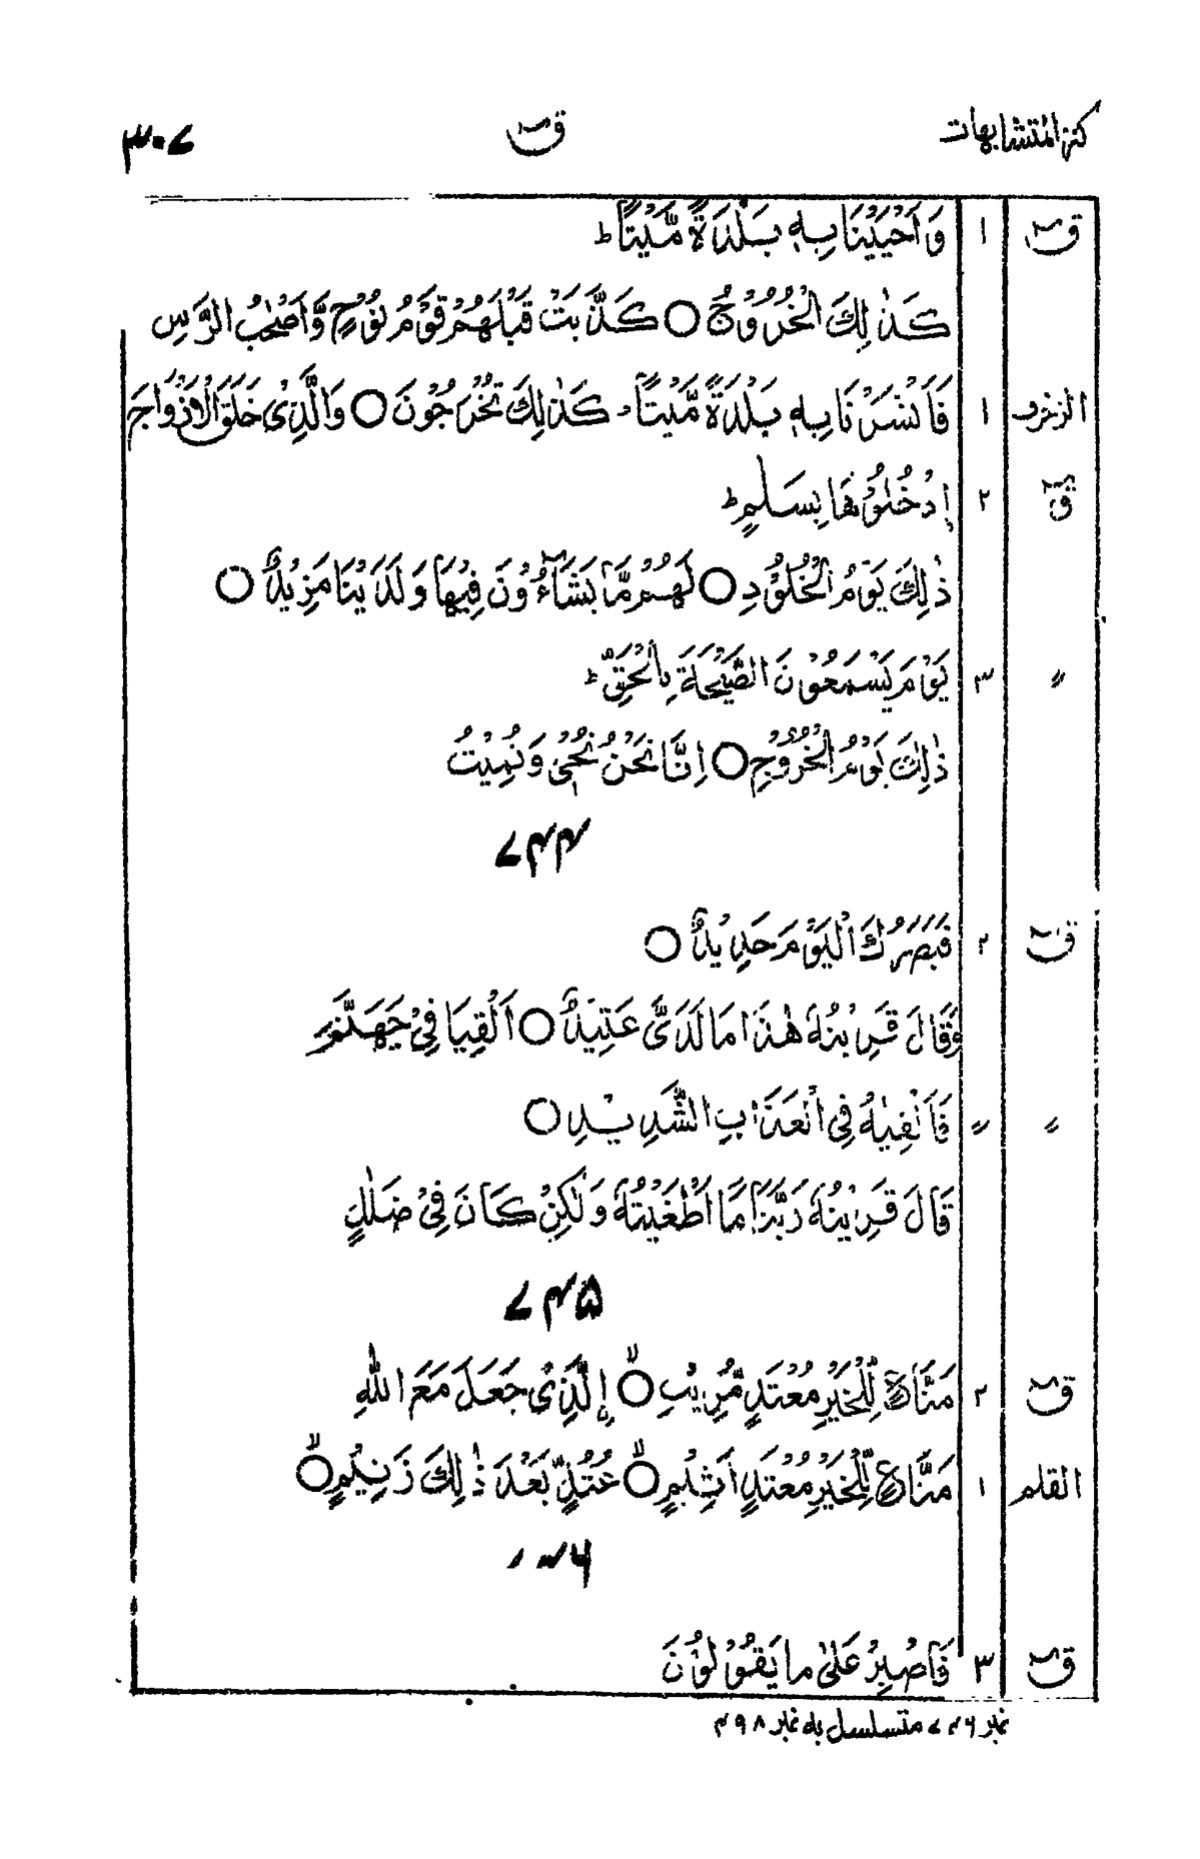 كنز المتشابهات ق ۳۰۷
ق ۱ وَاَحْيَيْنَا بِهٖ بَلْدَةً مَّيْتًا ؕ
كَذٰلِكَ الْخُرُوْجُ ○ كَذَّبَتْ قَبْلَهُمْ قَوْمُ نُوْحٍ وَّاَصْحٰبُ الرَّسِّ
الزخرف ۱ فَاَنْشَرْنَا بِهٖ بَلْدَةً مَّيْتًا ۚ كَذٰلِكَ تُخْرَجُوْنَ ○ وَالَّذِىْ خَلَقَ الْاَزْوَاجَ
ق ۲ اِدْخُلُوْهَا بِسَلٰمٍ ؕ
ذٰلِكَ يَوْمُ الْخُلُوْدِ ○ لَهُمْ مَّا يَشَآءُوْنَ فِيْهَا وَلَدَيْنَا مَزِيْدٌ ○
〃 ۳ يَوْمَ يَسْمَعُوْنَ الصَّيْحَةَ بِالْحَقِّ ؕ
ذٰلِكَ يَوْمُ الْخُرُوْجِ ○ اِنَّا نَحْنُ نُحْىٖ وَنُمِيْتُ
۷۴۴
ق ۲ فَبَصَرُكَ الْيَوْمَ حَدِيْدٌ ○
وَقَالَ قَرِيْنُهٗ هٰذَا مَا لَدَىَّ عَتِيْدٌ ○ اَلْقِيَا فِىْ جَهَنَّمَ
〃 〃 فَاَلْقِيٰهُ فِى الْعَذَابِ الشَّدِيْدِ ○
قَالَ قَرِيْنُهٗ رَبَّنَا مَا اَطْغَيْتُهٗ وَلٰكِنْ كَانَ فِىْ ضَلٰلٍ
۷۴۵
ق ۲ مَنَّاعٍ لِّلْخَيْرِ مُعْتَدٍ مُّرِيْبِ ○ اِلَّذِىْ جَعَلَ مَعَ اللّٰهِ
القلم ۱ مَنَّاعٍ لِّلْخَيْرِ مُعْتَدٍ اَثِيْمٍ ○ عُتُلٍّ بَعْدَ ذٰلِكَ زَنِيْمٍ ○
۷۴۶
ق ۳ فَاصْبِرْ عَلٰى مَا يَقُوْلُوْنَ
نمبر ۷۴۶ متسلسل به نمبر ۴۹۸